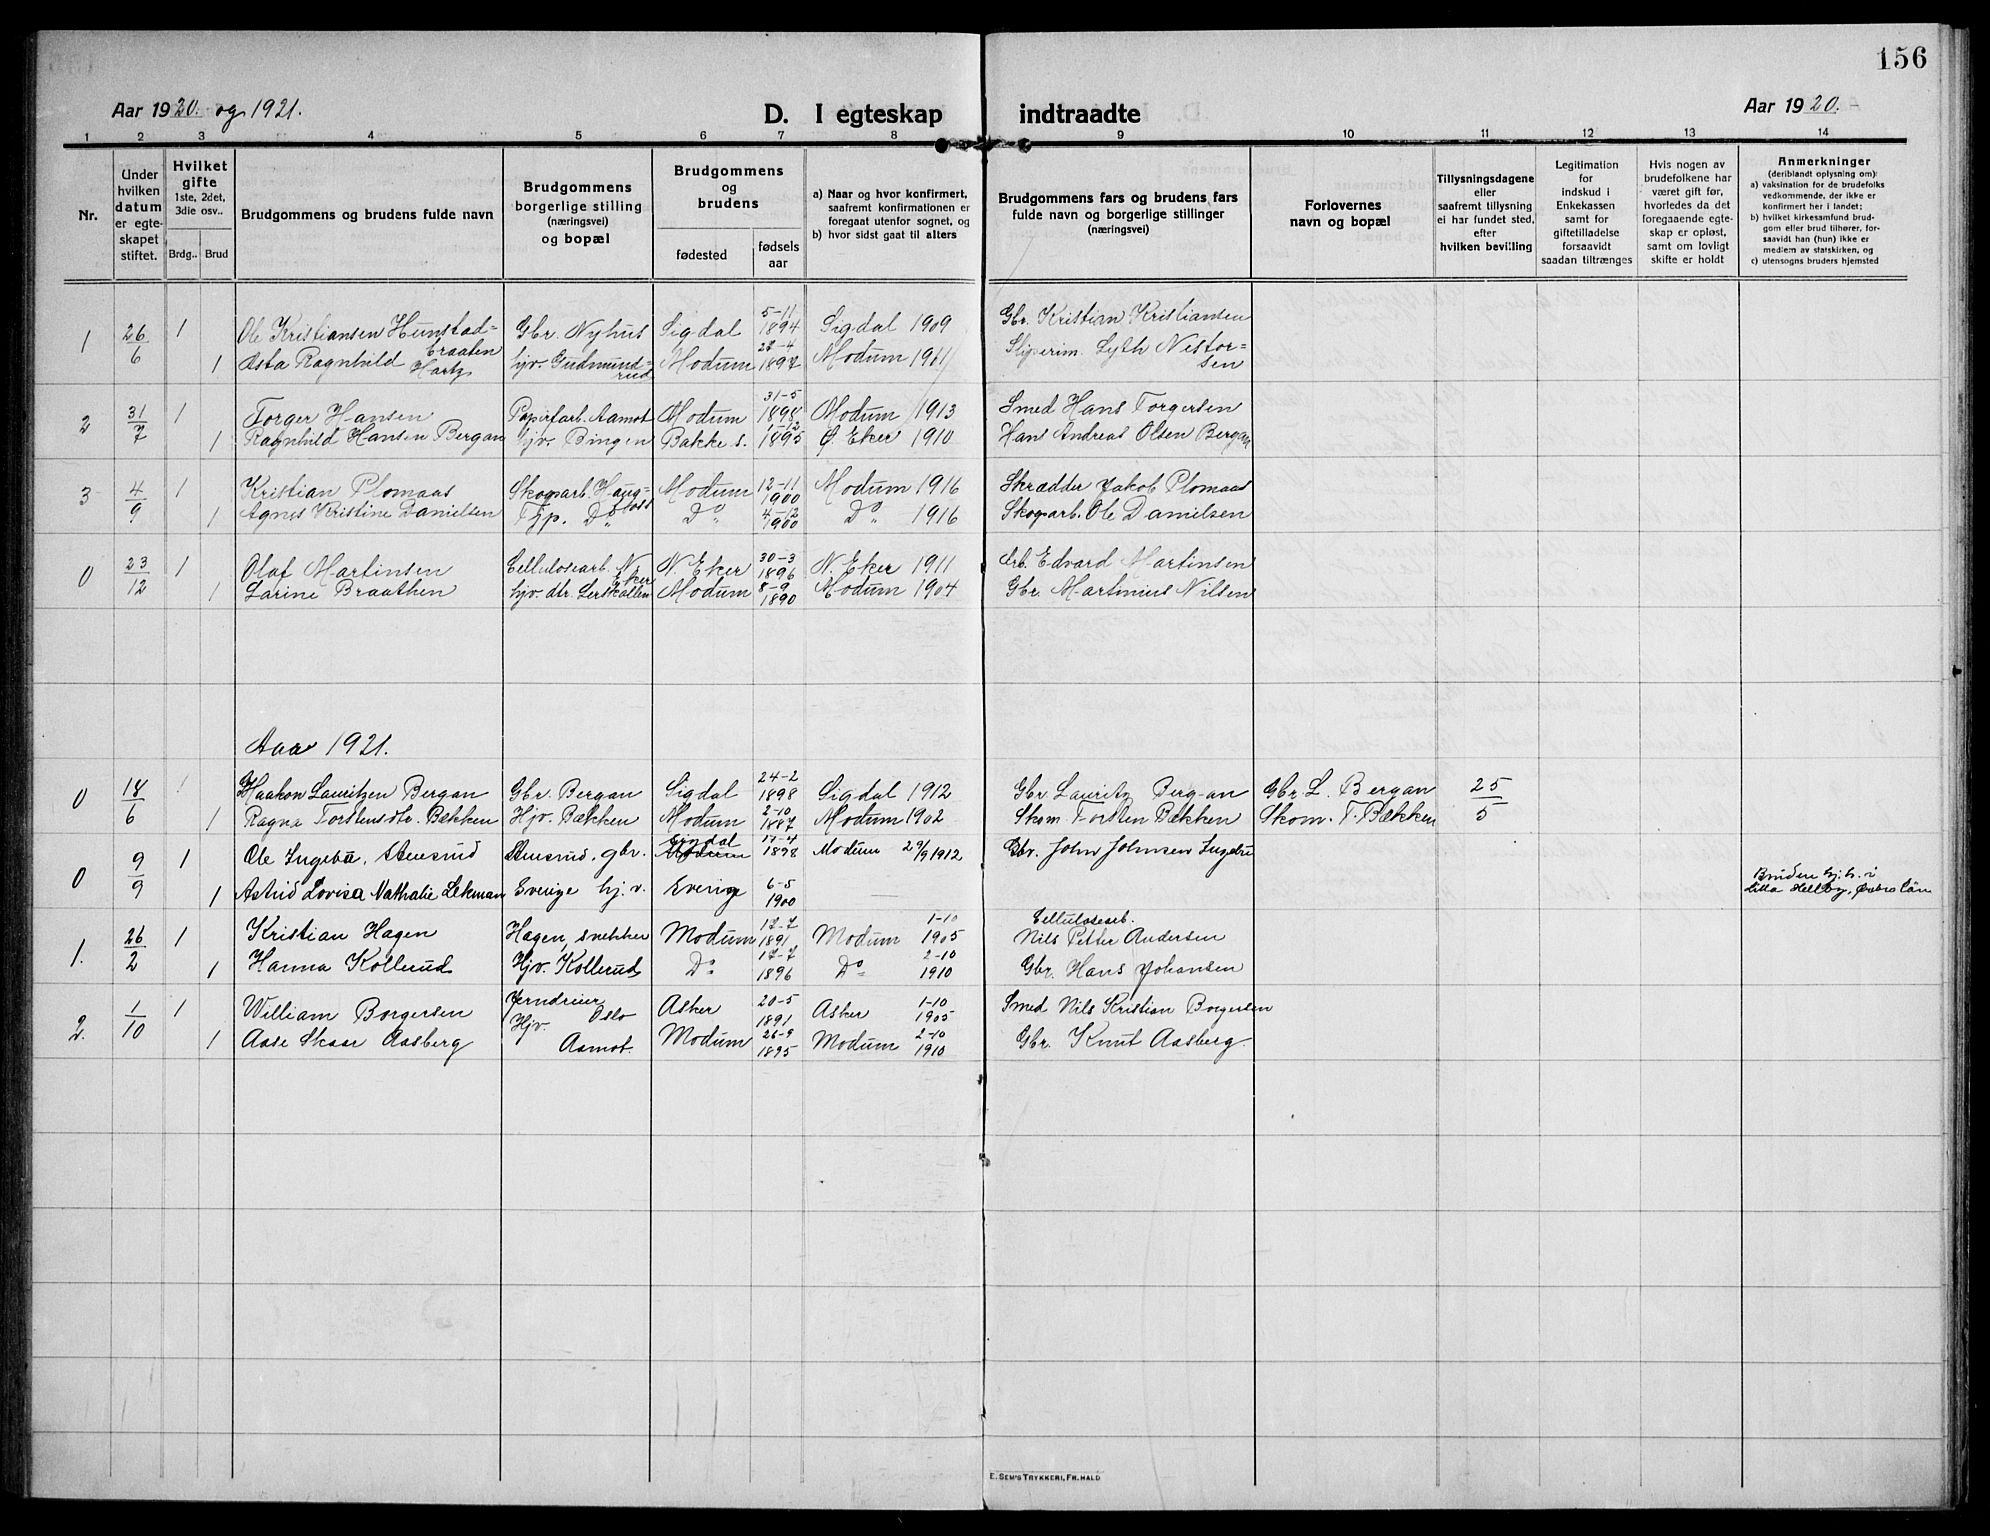 156
Aar 1920 og 1921.
D. I egteskap indtraadte
Aar 1920.
1 2 3 4 5 6 7 8 9 10 11 12 13 14
Nr.
Under hvilken datum er egte-skapet stiftet.
Hvilket gifte 1ste, 2det, 3die osv..
Brdg.. Brud
Brudgommens og brudens fulde navn
Brudgommens borgerlige stilling (næringsvei) og bopæl
Brudgommens og brudens
fødested
fødsels aar
a) Naar og hvor konfirmert, saafremt konfirmationen er foregaat utenfor sognet, og
b) hvor sidst gaat til alters
Brudgommens fars og brudens fars fulde navn og borgerlige stillinger (næringsvei)
Forlovernes navn og bopæl
Tillysningsdagene eller saafremt tillysning ei har fundet sted, efter hvilken bevilling
Legitimation for indskud i Enkekassen samt for giftetilladelse forsaavidt saadan tiltrænges
Hvis nogen av brudefolkene har været gift før, hvorledes da det foregaaende egte-skap er opløst, samt om lovligt skifte er holdt
Anmerkninger
(deriblandt oplysning om):
a) vaksination for de brudefolks vedkommende, der ikke er konfirmert her i landet;
b) hvilket kirkesamfund brud-gom eller brud tilhører, for-saavidt han (hun) ikke er medlem av statskirken, og
c) utensogns bruders hjemsted
1 26/6 1 Ole Kristiansen Hunstad-braaten Gbr. Nyhus Sigdal 5-11 1894 Sigdal 1909 Gbr. Kristian Kristiansen
1 Asta Ragnhild Hartz hjv. Gudmund-rud Modum 1897 Modum 1911 Sliperim. Lyth Nestor=sen
2 31/7 1 Torger Hansen Papirfarb. Aamot Modum 31-5 1898 Modum 1913 Smed Hans Torgersen
1 Ragnhild Hansen Bergan hjv. Bingen Bakke s. 1895 Ø. Eker 1910 Hans Andreas Olsen Bergan
3 4/9 1 Kristian Plomaas Skogarb. Haug-foss Modum 12-11 1900 Modum 1916 Skrædder Jakob Plomaas
1 Agnes Kristine Danielsen Do Do 4-12 1900 Do 1916 Skogarb. Ole Danielsen
0 23/12 1 Olaf Martinsen Cellulosearb. N. Eker N. Eker 30-3 1896 N. Eker 1911 Arb. Edvard Martinsen
1 Larine Braathen hjv. dtr. Lerskallen Modum 8-9 1890 Modum 1904 Gbr. Martinius Nilsen
Aar 1921.
0 18/6 1 Haakon Lauritzen Bergan Gbr. Bergan Sigdal 24-2 1898 Sigdal 1912 Gbr. Lauritz Bergan Gbr. L. Bergan 25/5
1 Ragna Torstensdtr. Bækken Hjv. Bækken Modum 2-10 1887 Modum 1902 Skom. Torsten Bækken Skom. T. Bækken
0 9/9 1 Ole Ingebu, Stensrud Stensrud, gbr. Sigdal Modum 1898 Modum 29/9 1912 Gbr. John Johnsen
1 Astrid Lovisa Nathalie Lekman Sverige hj. v. Sverige 6-5 1900 Bruden hj. h. i Lilla Hellby, Örebro Län
1. 26/2 1 Kristian Hagen Hagen, snekker Modum 17-7 1891 Modum 1-10 1905 Cellulosearb. Nils Petter Andersen
1 Hanna Kollerud Hjv. Kollerud Do 17-7 1896 Do 2-10 1910 Gbr. Hans Johansen
2. 1/10 1 William Borgersen Jerndreier Oslo Asker 20-5 1891 Asker 1-10 1905 Smed Nils Kristian Borgersen
1 Aase Skaar Aasberg Hjv. Aamot Modum 26-9 1895 Modum 2-10 1910 Gbr. Knut Aasberg.
E. Sem's Trykkeri, Fr.hald